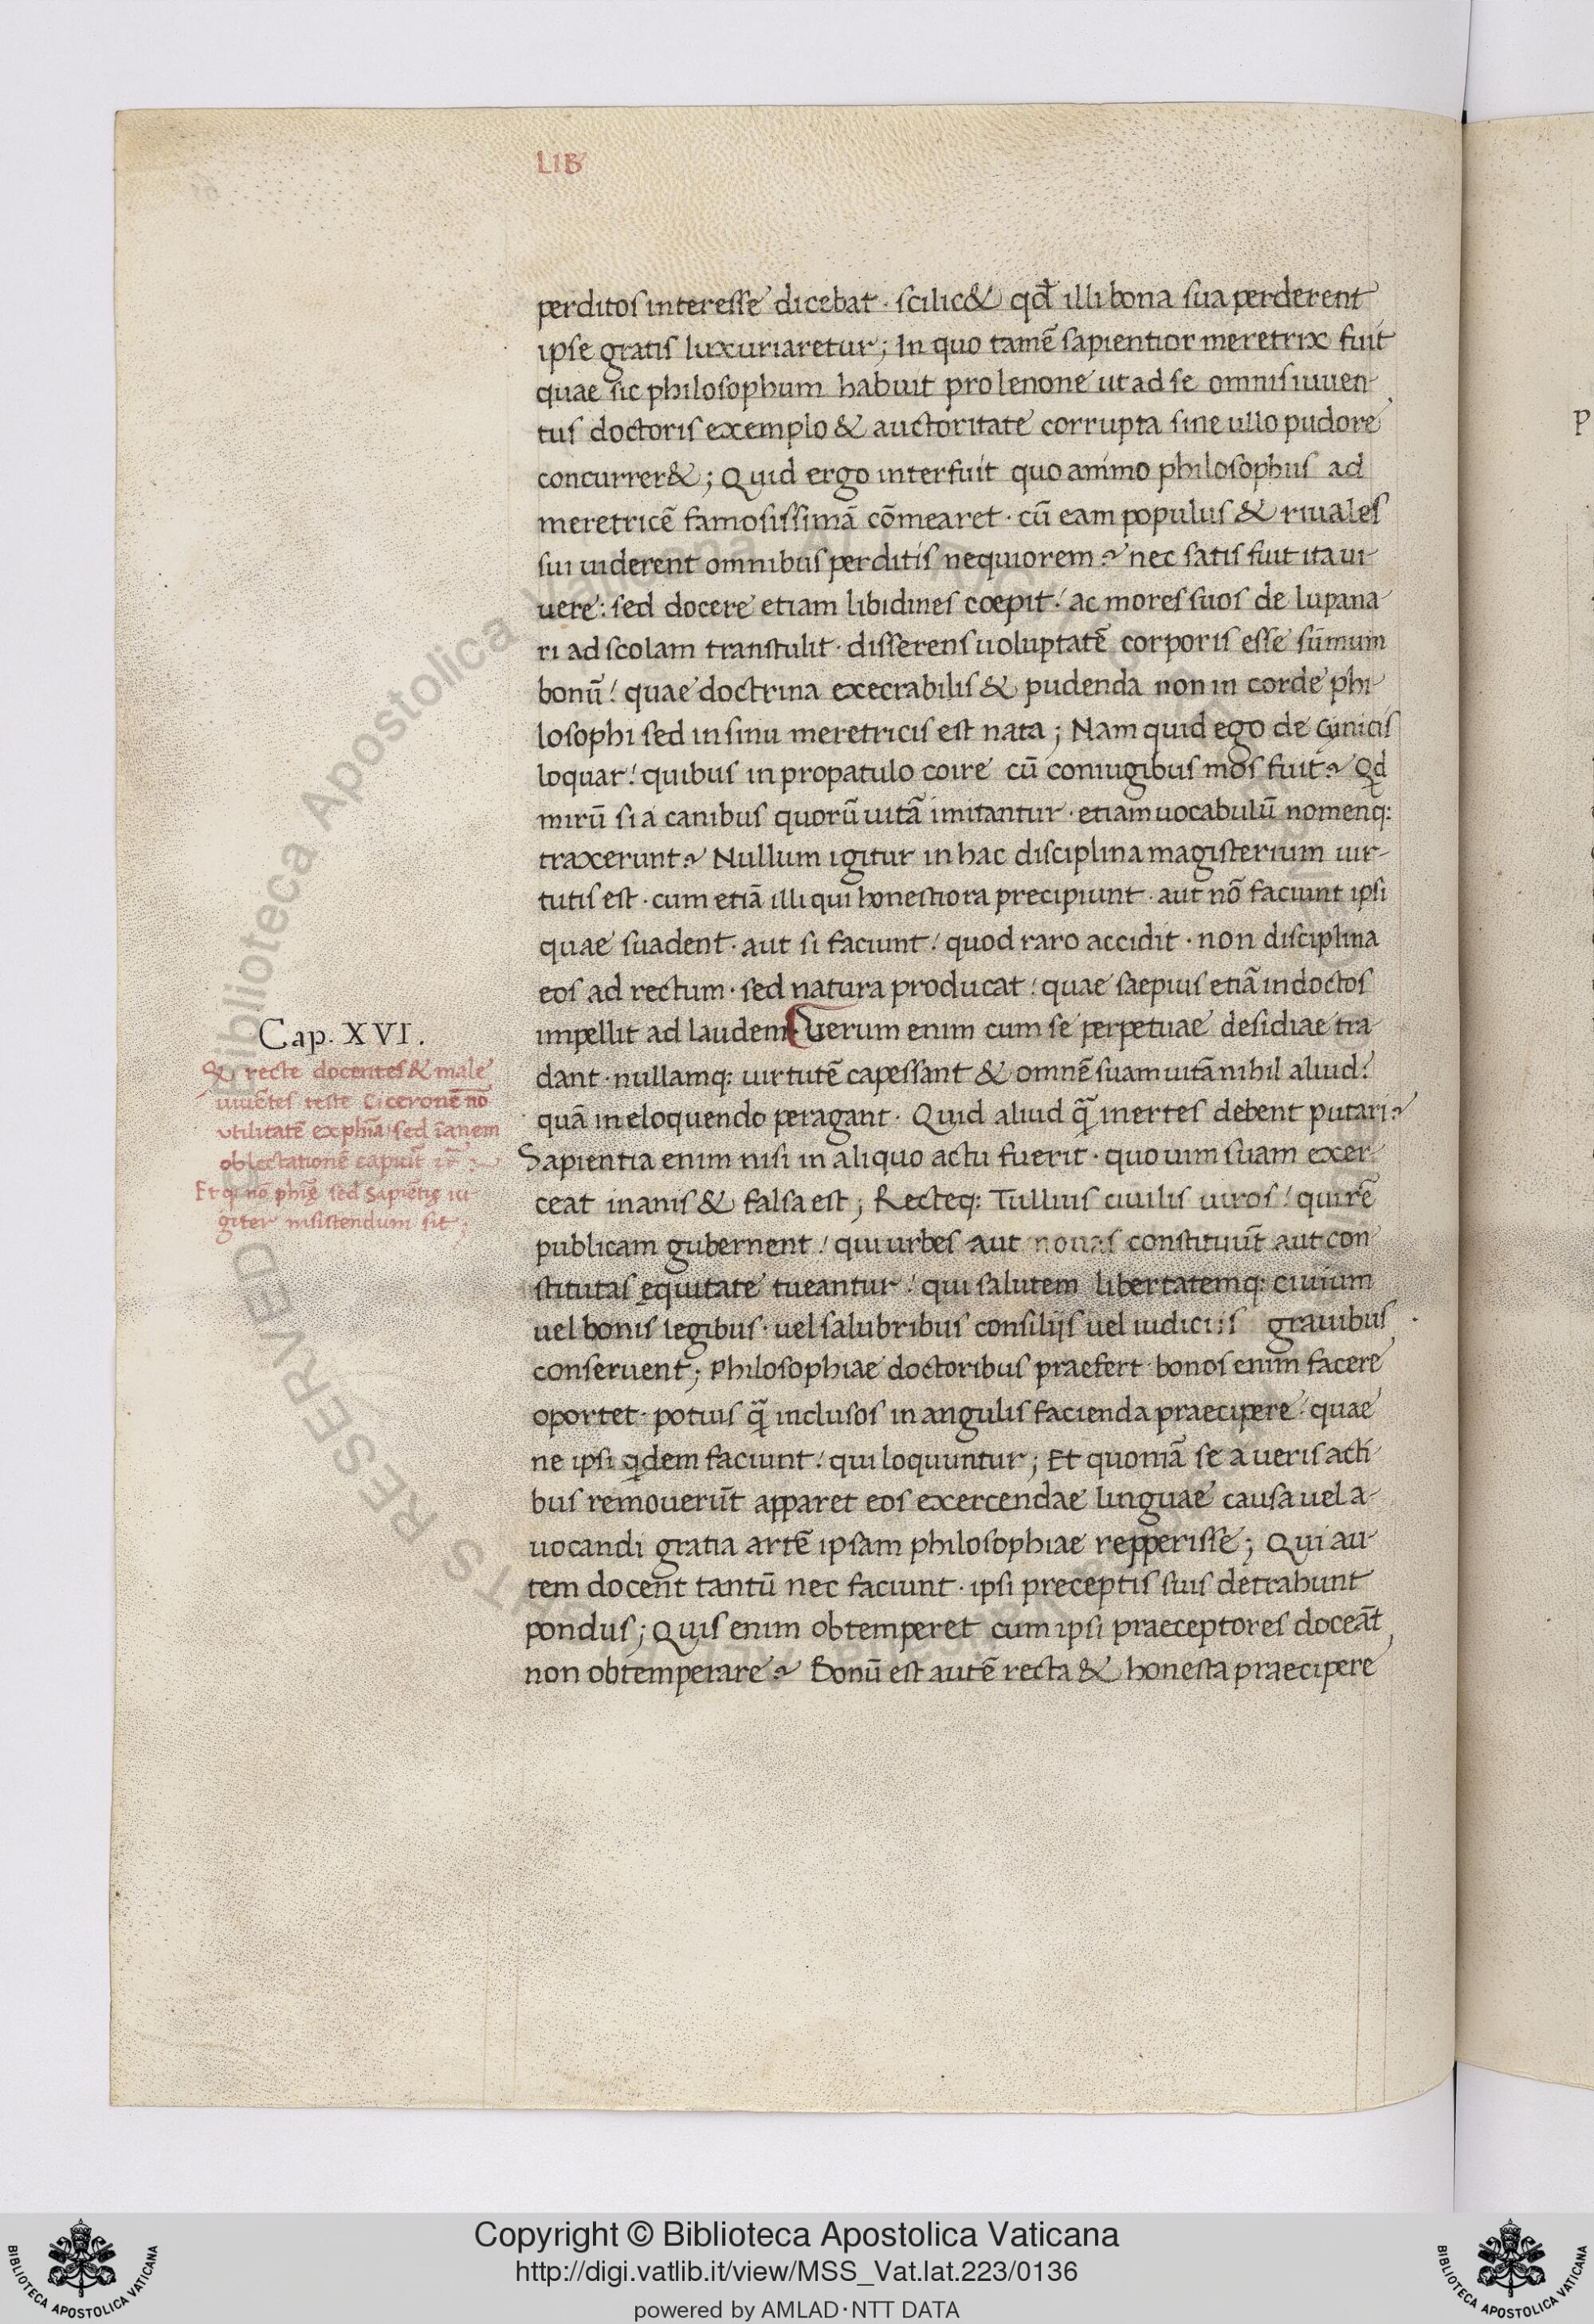 LIB
perditos interesse dicebat · scilic& qđ illi bona sua perderent
ipse gratis luxuriaretur ; In quo tamē sapientior meretrix fuit
quae sic philosophum habuit pro lenone ut ad se omnis iuuen-
tus doctoris exemplo & auctoritate corrupta sine ullo pudore
concurrer& ; Quid ergo interfuit quo animo philosophus ad
meretricē famosissimā cōmearet · cū eam populus & riuales
sui uiderent omnibus perditis nequiorem ? nec satis fuit ita ui-
uere : sed docere etiam libidines coepit ! ac mores suos de lupana-
ri ad scolam transtulit · disserens uoluptatē corporis esse sūmum
bonū ! quae doctrina execrabilis & pudenda non in corde phi-
losophi sed in sinu meretricis est nata ; Nam quid ego de cynicis
loquar ! quibus in propatulo coire cū coniugibus mos fuit ? Qd
mirū si a canibus quorū uitā imitantur · etiam uocabulū nomenq:
traxerunt ? Nullum igitur in hac disciplina magisterium uir-
tutis est · cum etiā illi qui honestiora precipiunt · aut nō faciunt ipsi
quae suadent · aut si faciunt ! quod raro accidit · non disciplina
eos ad rectum · sed natura producat ! quae saepius etiā indoctos
impellit ad laudem · Verum enim cum se perpetuae desidiae tra-
dant · nullamq: uirtutē capessant & omnē suam uitā nihil aliud !
quā in eloquendo peragant · Quid aliud q̄ inertes debent putari ?
Sapientia enim nisi in aliquo actu fuerit · quo uim suam exer-
ceat inanis & falsa est ; Recteq: Tullius ciuilis uiros ! qui rē
publicam gubernent ! qui urbes aut nouas constituūt aut con-
stitutas ęquitate tueantur ! qui salutem libertatemq: ciuium
uel bonis legibus · uel salubribus consiliis uel iudiciis grauibus
conseruent ; Philosophiae doctoribus praefert · bonos enim facere
oportet · potius q̄ inclusos in angulis facienda praecipere ! quae
ne ipsi qdem faciunt ! qui loquuntur ; Et quoniā se a ueris acti-
bus remouerūt apparet eos exercendae linguae causa uel a-
uocandi gratia artē ipsam philosophiae repperisse ; Qui au-
tem docent tantū nec faciunt · ipsi preceptis suis detrahunt
pondus ; Quis enim obtemperet cum ipsi praeceptores doceāt
non obtemperare ? Bonū est autē recta & honesta praecipere
Cap. XVI.
& recte docentes & male
uiuētes teste Ciceronē nō
vtilitatē ex phīa sed īanem
oblectationē capiūt
Et q nō phię sed sapiētię iu-
giter insistendum sit ;
P
Biblioteca Apostolica Vaticana
RIGHTS RESERVED
Copyright © Biblioteca Apostolica Vaticana
http://digi.vatlib.it/view/MSS_Vat.lat.223/0136
powered by AMLAD·NTT DATA
BIBLIOTECA APOSTOLICA VATICANA
BIBLIOTECA APOSTOLICA VATICANA